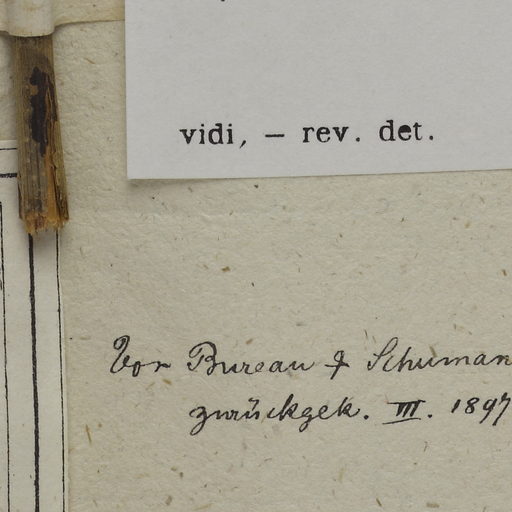 vidi, — rev. det.
Von Bureau & Schuman
zurückgek. III. 1897